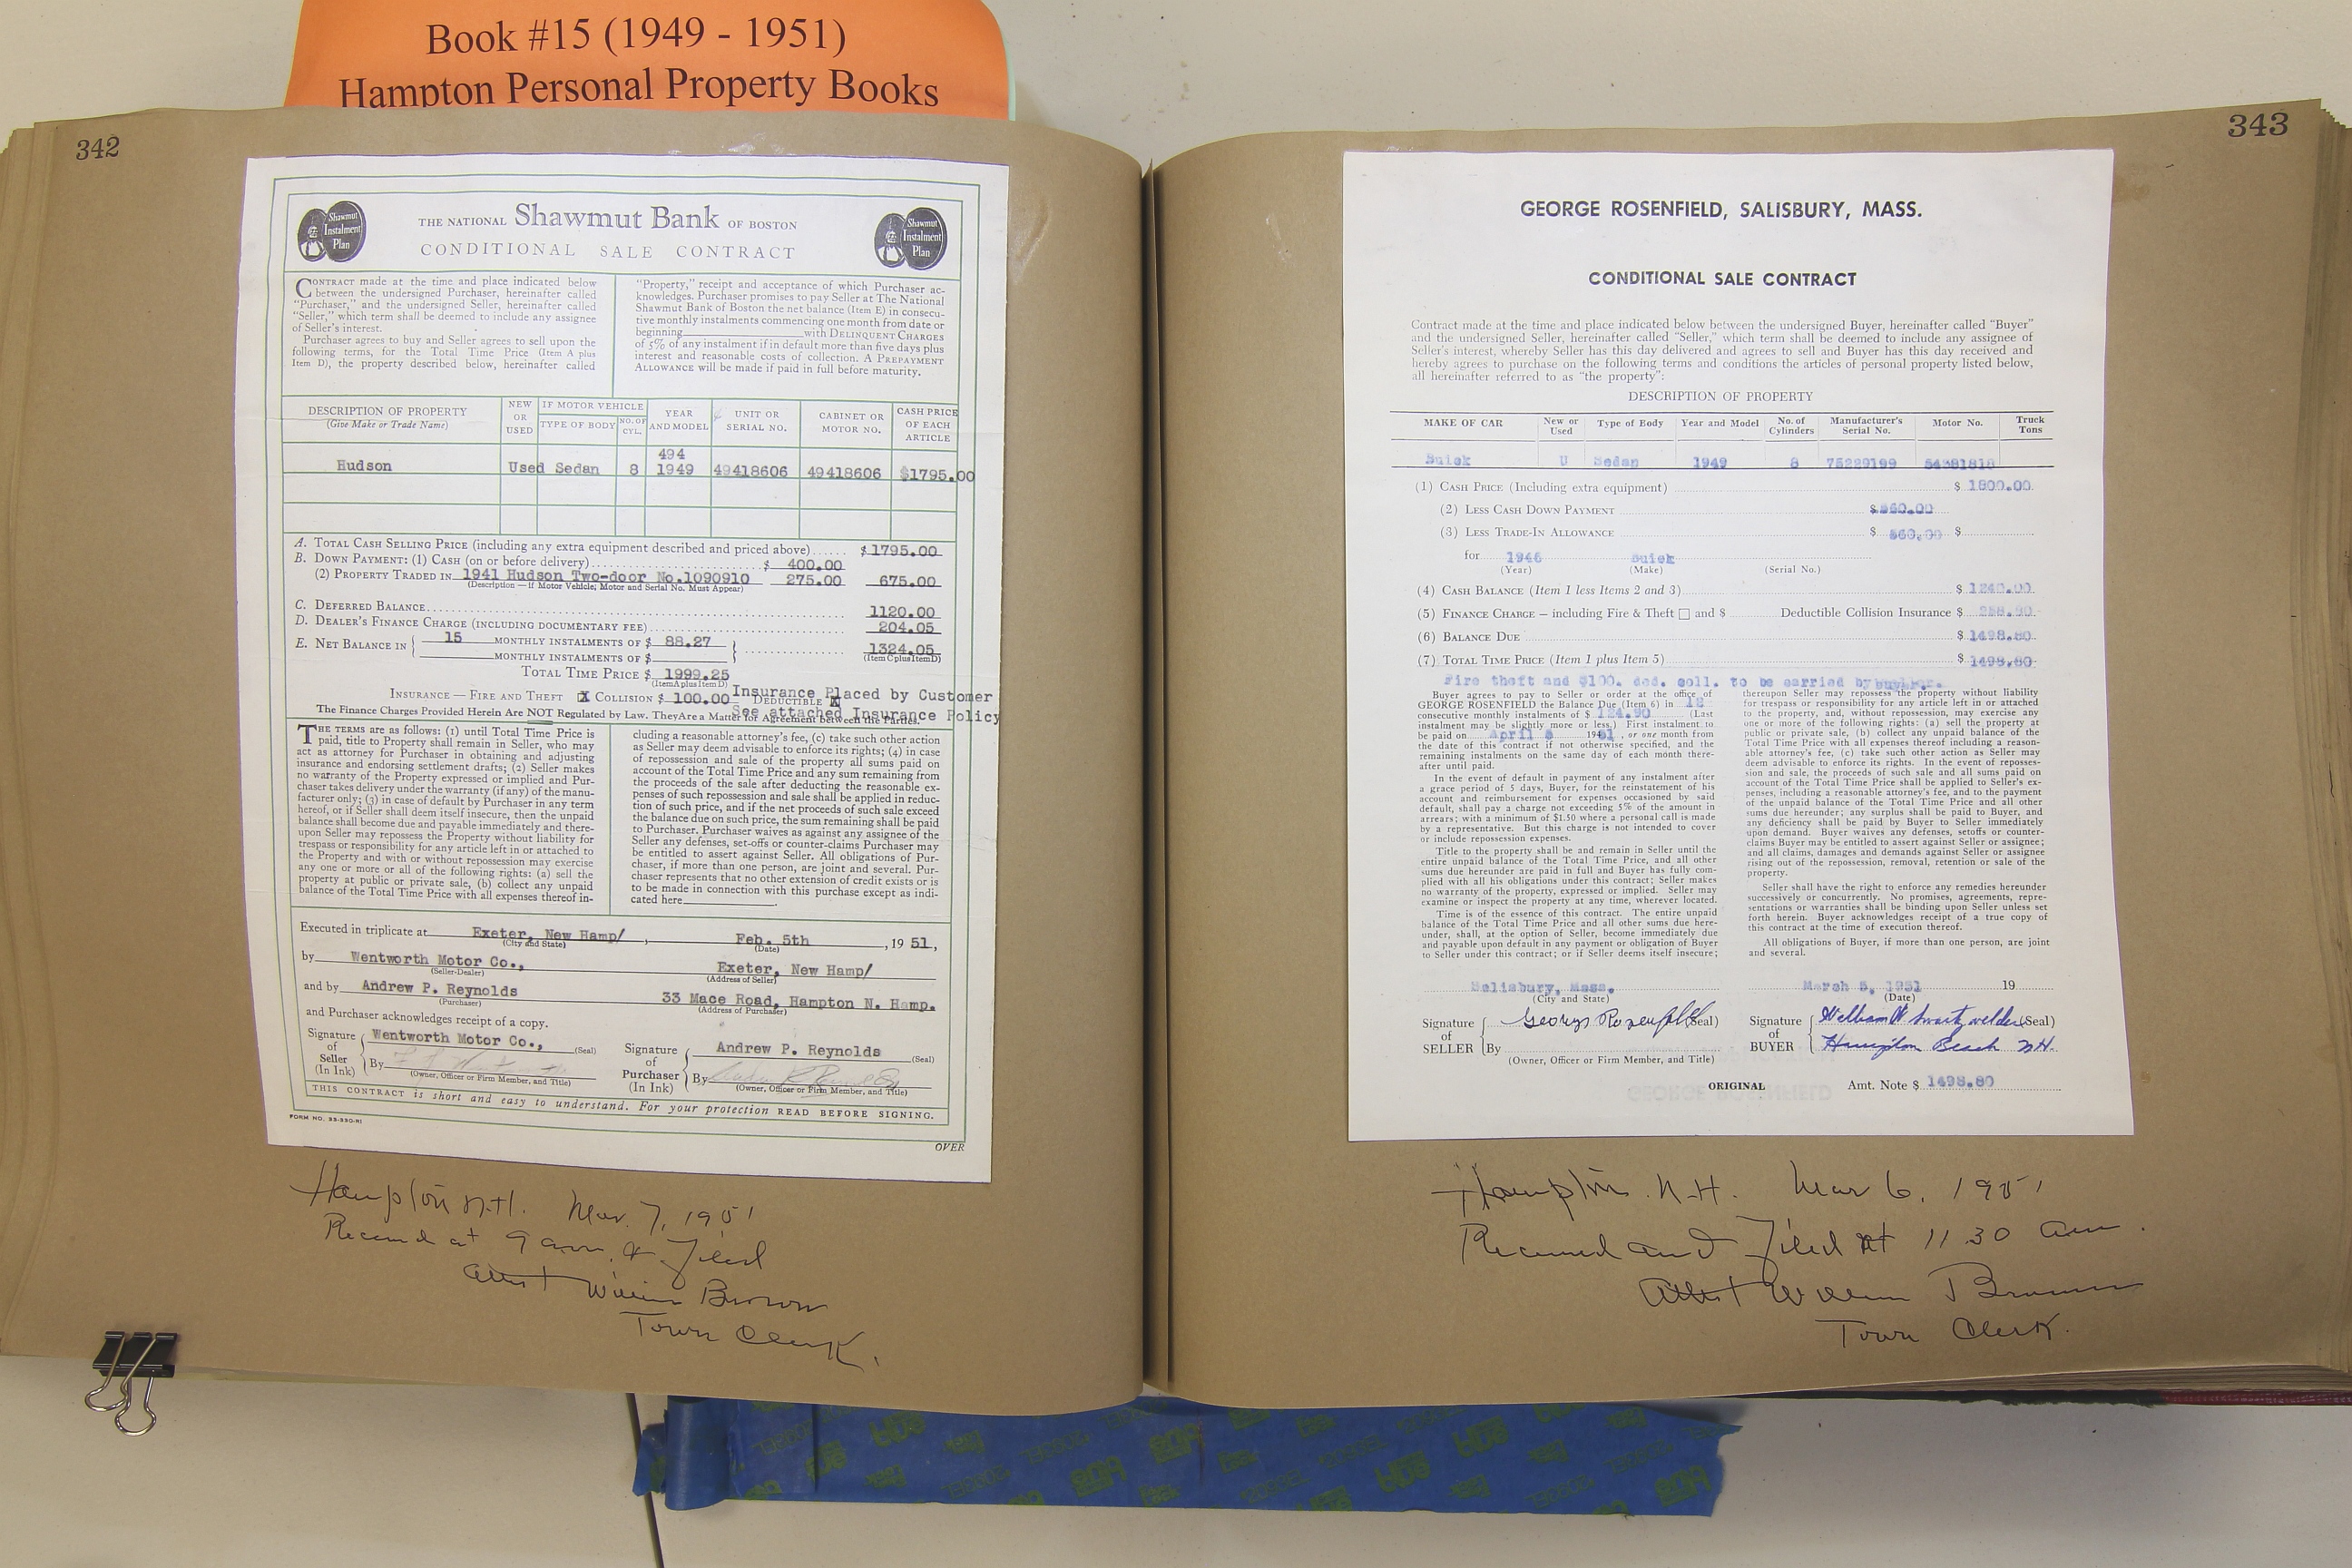 Book #15 (1949 - 1951)
Hampton Personal Property Books
342
Shawmut Instalment Plan
THE NATIONAL Shawmut Bank OF BOSTON
CONDITIONAL SALE CONTRACT
Shawmut Instalment Plan
CONTRACT made at the time and place indicated below
between the undersigned Purchaser, hereinafter called
"Purchaser," and the undersigned Seller, hereinafter called
"Seller," which term shall be deemed to include any assignee
of Seller's interest.
Purchaser agrees to buy and Seller agrees to sell upon the
following terms, for the Total Time Price (Item A plus
Item D), the property described below, hereinafter called
"Property," receipt and acceptance of which Purchaser ac-
knowledges. Purchaser promises to pay Seller at The National
Shawmut Bank of Boston the net balance (Item E) in consecu-
tive monthly instalments commencing one month from date or
beginning with DELINQUENT CHARGES
of 5% of any instalment if in default more than five days plus
interest and reasonable costs of collection. A PREPAYMENT
ALLOWANCE will be made if paid in full before maturity.
DESCRIPTION OF PROPERTY (Give Make or Trade Name) NEW OR USED IF MOTOR VEHICLE TYPE OF BODY NO. OF CYL. YEAR AND MODEL UNIT OR SERIAL NO. CABINET OR MOTOR NO. CASH PRICE OF EACH ARTICLE
494
Hudson Used Sedan 8 1949 49418606 49418606 $1795.00
A. TOTAL CASH SELLING PRICE (including any extra equipment described and priced above) $1795.00
B. DOWN PAYMENT: (1) CASH (on or before delivery) $ 400.00
(2) PROPERTY TRADED IN 1941 Hudson Two-door No.1090910 275.00 675.00
(Description — if Motor Vehicle; Motor and Serial No. Must Appear)
C. DEFERRED BALANCE 1120.00
D. DEALER'S FINANCE CHARGE (INCLUDING DOCUMENTARY FEE) 204.05
E. NET BALANCE IN 15 MONTHLY INSTALMENTS OF $ 88.27 1324.05
MONTHLY INSTALMENTS OF $ (Item C plus Item D)
TOTAL TIME PRICE $ 1999.25
(Item A plus Item D)
INSURANCE — FIRE AND THEFT X COLLISION $ 100.00 DEDUCTIBLE X Insurance Placed by Customer
See attached Insurance Policy
The Finance Charges Provided Herein Are NOT Regulated by Law. They Are a Matter for Agreement between the Parties.
THE TERMS are as follows: (1) until Total Time Price is
paid, title to Property shall remain in Seller, who may
act as attorney for Purchaser in obtaining and adjusting
insurance and endorsing settlement drafts; (2) Seller makes
no warranty of the Property expressed or implied and Pur-
chaser takes delivery under the warranty (if any) of the manu-
facturer only; (3) in case of default by Purchaser in any term
hereof, or if Seller shall deem itself insecure, then the unpaid
balance shall become due and payable immediately and there-
upon Seller may repossess the Property without liability for
trespass or responsibility for any article left in or attached to
the Property and with or without repossession may exercise
any one or more or all of the following rights: (a) sell the
property at public or private sale, (b) collect any unpaid
balance of the Total Time Price with all expenses thereof in-
cluding a reasonable attorney's fee, (c) take such other action
as Seller may deem advisable to enforce its rights; (4) in case
of repossession and sale of the property all sums paid on
account of the Total Time Price and any sum remaining from
the proceeds of the sale after deducting the reasonable ex-
penses of such repossession and sale shall be applied in reduc-
tion of such price, and if the net proceeds of such sale exceed
the balance due on such price, the sum remaining shall be paid
to Purchaser. Purchaser waives as against any assignee of the
Seller any defenses, set-offs or counter-claims Purchaser may
be entitled to assert against Seller. All obligations of Pur-
chaser, if more than one person, are joint and several. Pur-
chaser represents that no other extension of credit exists or is
to be made in connection with this purchase except as indi-
cated here
Executed in triplicate at Exeter, New Hamp/ , Feb. 5th , 19 51,
(City and State) (Date)
by Wentworth Motor Co., Exeter, New Hamp/
(Seller-Dealer) (Address of Seller)
and by Andrew P. Reynolds 33 Mace Road, Hampton N. Hamp.
(Purchaser) (Address of Purchaser)
and Purchaser acknowledges receipt of a copy.
Signature of Seller (In Ink) Wentworth Motor Co., (Seal)
By
(Owner, Officer or Firm Member, and Title)
Signature of Purchaser (In Ink) Andrew P. Reynolds (Seal)
By
(Owner, Officer or Firm Member, and Title)
THIS CONTRACT is short and easy to understand. For your protection READ BEFORE SIGNING.
FORM NO. 33-330-RI
OVER
Hampton N.H. Mar. 7, 1951
Received at 9 am & Filed
Attest William Brown
Town Clerk.
343
GEORGE ROSENFIELD, SALISBURY, MASS.
CONDITIONAL SALE CONTRACT
Contract made at the time and place indicated below between the undersigned Buyer, hereinafter called "Buyer"
and the undersigned Seller, hereinafter called "Seller," which term shall be deemed to include any assignee of
Seller's interest, whereby Seller has this day delivered and agrees to sell and Buyer has this day received and
hereby agrees to purchase on the following terms and conditions the articles of personal property listed below,
all hereinafter referred to as "the property":
DESCRIPTION OF PROPERTY
MAKE OF CAR New or Used Type of Body Year and Model No. of Cylinders Manufacturer's Serial No. Motor No. Truck Tons
Buick U Sedan 1949 8 75229199
(1) CASH PRICE (Including extra equipment) $ 1800.00
(2) LESS CASH DOWN PAYMENT $560.00
(3) LESS TRADE-IN ALLOWANCE $ 560.00 $
for 1946 Buick
(Year) (Make) (Serial No.)
(4) CASH BALANCE (Item 1 less Items 2 and 3) $ 1240.00
(5) FINANCE CHARGE — including Fire & Theft and $ Deductible Collision Insurance $ 258.80
(6) BALANCE DUE $ 1498.80
(7) TOTAL TIME PRICE (Item 1 plus Item 5) $ 1498.80
Fire theft and $100. ded. coll. to be carried by buyer.
Buyer agrees to pay to Seller or order at the office of
GEORGE ROSENFIELD the Balance Due (Item 6) in 12
consecutive monthly instalments of $ 124.90 (Last
instalment may be slightly more or less.) First instalment to
be paid on April 5 1951, or one month from
the date of this contract if not otherwise specified, and the
remaining instalments on the same day of each month there-
after until paid.
In the event of default in payment of any instalment after
a grace period of 5 days, Buyer, for the reinstatement of his
account and reimbursement for expenses occasioned by said
default, shall pay a charge not exceeding 5% of the amount in
arrears; with a minimum of $1.50 where a personal call is made
by a representative. But this charge is not intended to cover
or include repossession expenses.
Title to the property shall be and remain in Seller until the
entire unpaid balance of the Total Time Price, and all other
sums due hereunder are paid in full and Buyer has fully com-
plied with all his obligations under this contract; Seller makes
no warranty of the property, expressed or implied. Seller may
examine or inspect the property at any time, wherever located.
Time is of the essence of this contract. The entire unpaid
balance of the Total Time Price and all other sums due here-
under, shall, at the option of Seller, become immediately due
and payable upon default in any payment or obligation of Buyer
to Seller under this contract; or if Seller deems itself insecure;
thereupon Seller may repossess the property without liability
for trespass or responsibility for any article left in or attached
to the property, and, without repossession, may exercise any
one or more or all of the following rights: (a) sell the property at
public or private sale, (b) collect any unpaid balance of the
Total Time Price with all expenses thereof including a reason-
able attorney's fee, (c) take such other action as Seller may
deem advisable to enforce its rights. In the event of reposses-
sion and sale, the proceeds of such sale and all sums paid on
account of the Total Time Price shall be applied to Seller's ex-
penses, including a reasonable attorney's fee, and to the payment
of the unpaid balance of the Total Time Price and all other
sums due hereunder; any surplus shall be paid to Buyer, and
any deficiency shall be paid by Buyer to Seller immediately
upon demand. Buyer waives any defenses, setoffs or counter-
claims Buyer may be entitled to assert against Seller or assignee;
and all claims, damages and demands against Seller or assignee
rising out of the repossession, removal, retention or sale of the
property.
Seller shall have the right to enforce any remedies hereunder
successively or concurrently. No promises, agreements, repre-
sentations or warranties shall be binding upon Seller unless set
forth herein. Buyer acknowledges receipt of a true copy of
this contract at the time of execution thereof.
All obligations of Buyer, if more than one person, are joint
and several.
Salisbury, Mass. March 5, 1951 19
(City and State) (Date)
Signature of SELLER George Rosenfield (Seal)
By
(Owner, Officer or Firm Member, and Title)
Signature of BUYER William W Swartzwelder (Seal)
Hampton Beach N.H.
ORIGINAL Amt. Note $ 1498.80
Hampton N.H. Mar 6, 1951
Received and Filed At 11 30 am.
Attest William Brown
Town Clerk.